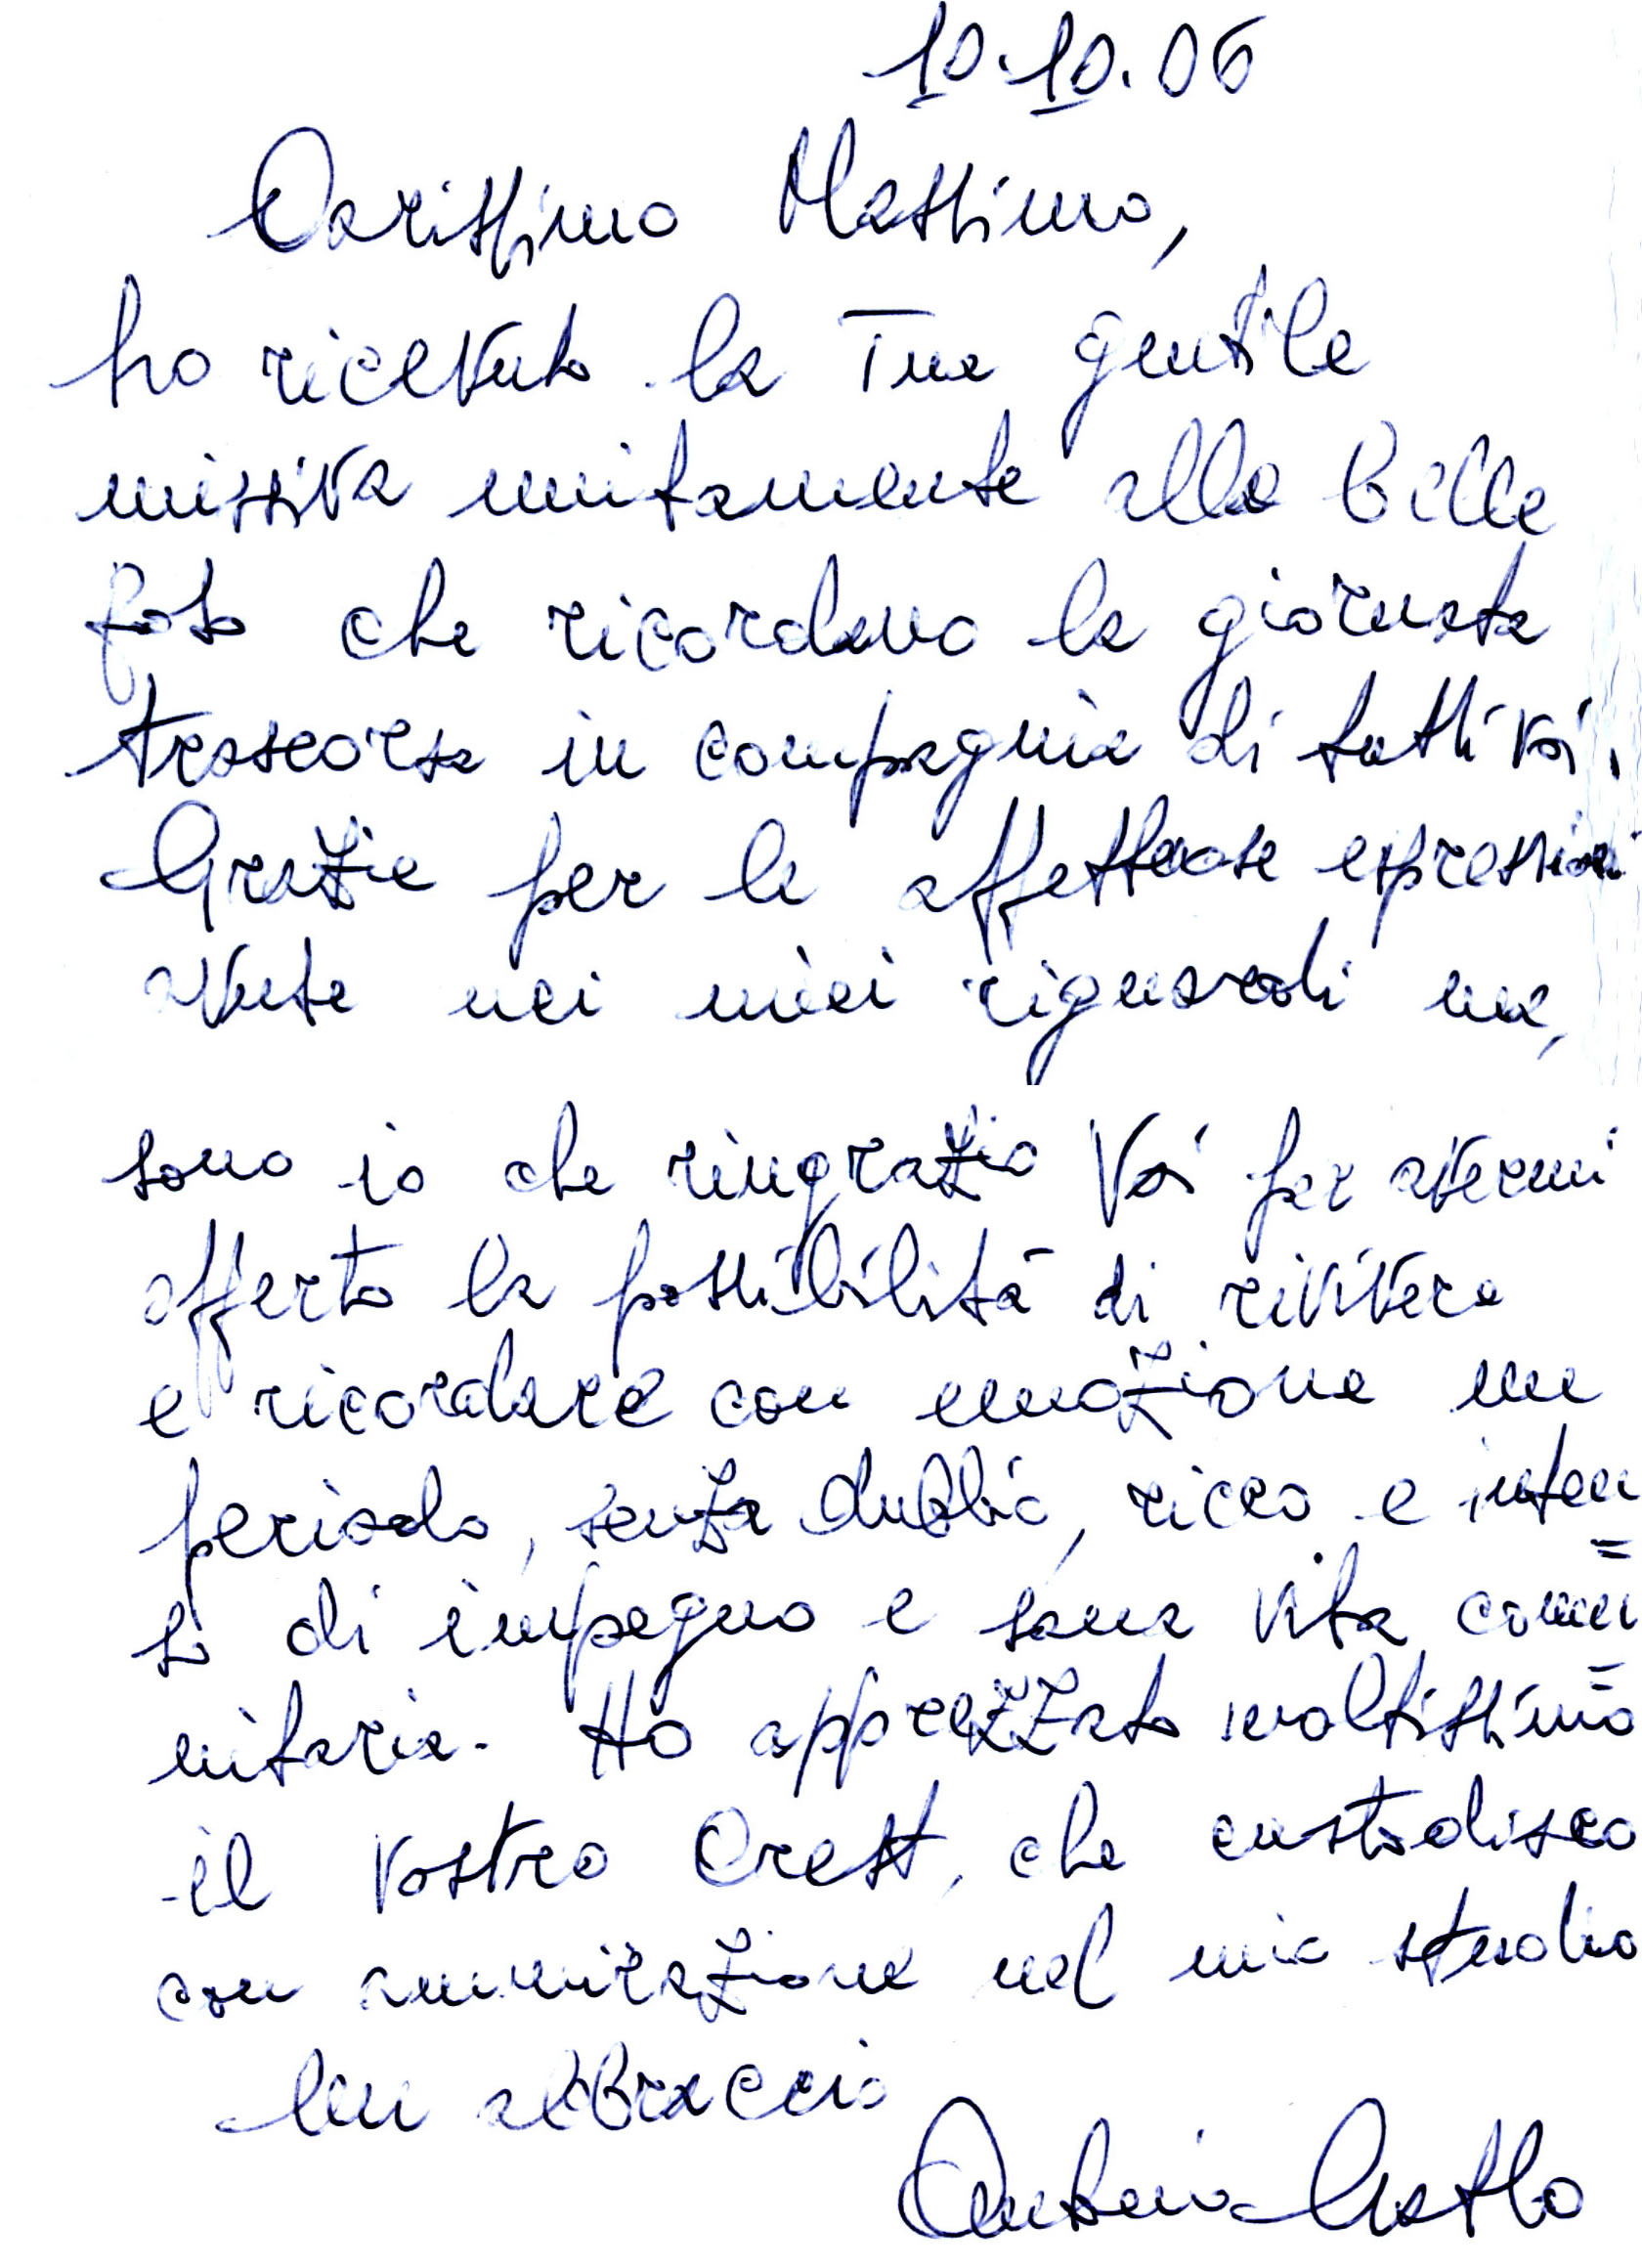 10.10.06
Carissimo Massimo,
ho ricevuto la Tua gentile
missiva unitamente alle belle
foto che ricordano la giornata
trascorsa in compagnia di tutti voi.
Grazie per le affettuose espressioni
avute nei miei riguardi ma,
sono io che ringrazio Voi per avermi
offerto la possibilità di rivivere
e ricordare con emozione un
periodo, senza dubbio, ricco e inten=
so di impegno e sana vita comu=
nitaria. Ho apprezzato moltissimo
il vostro Crest, che custodisco
con ammirazione nel mio studio
Un abbraccio
Antonio